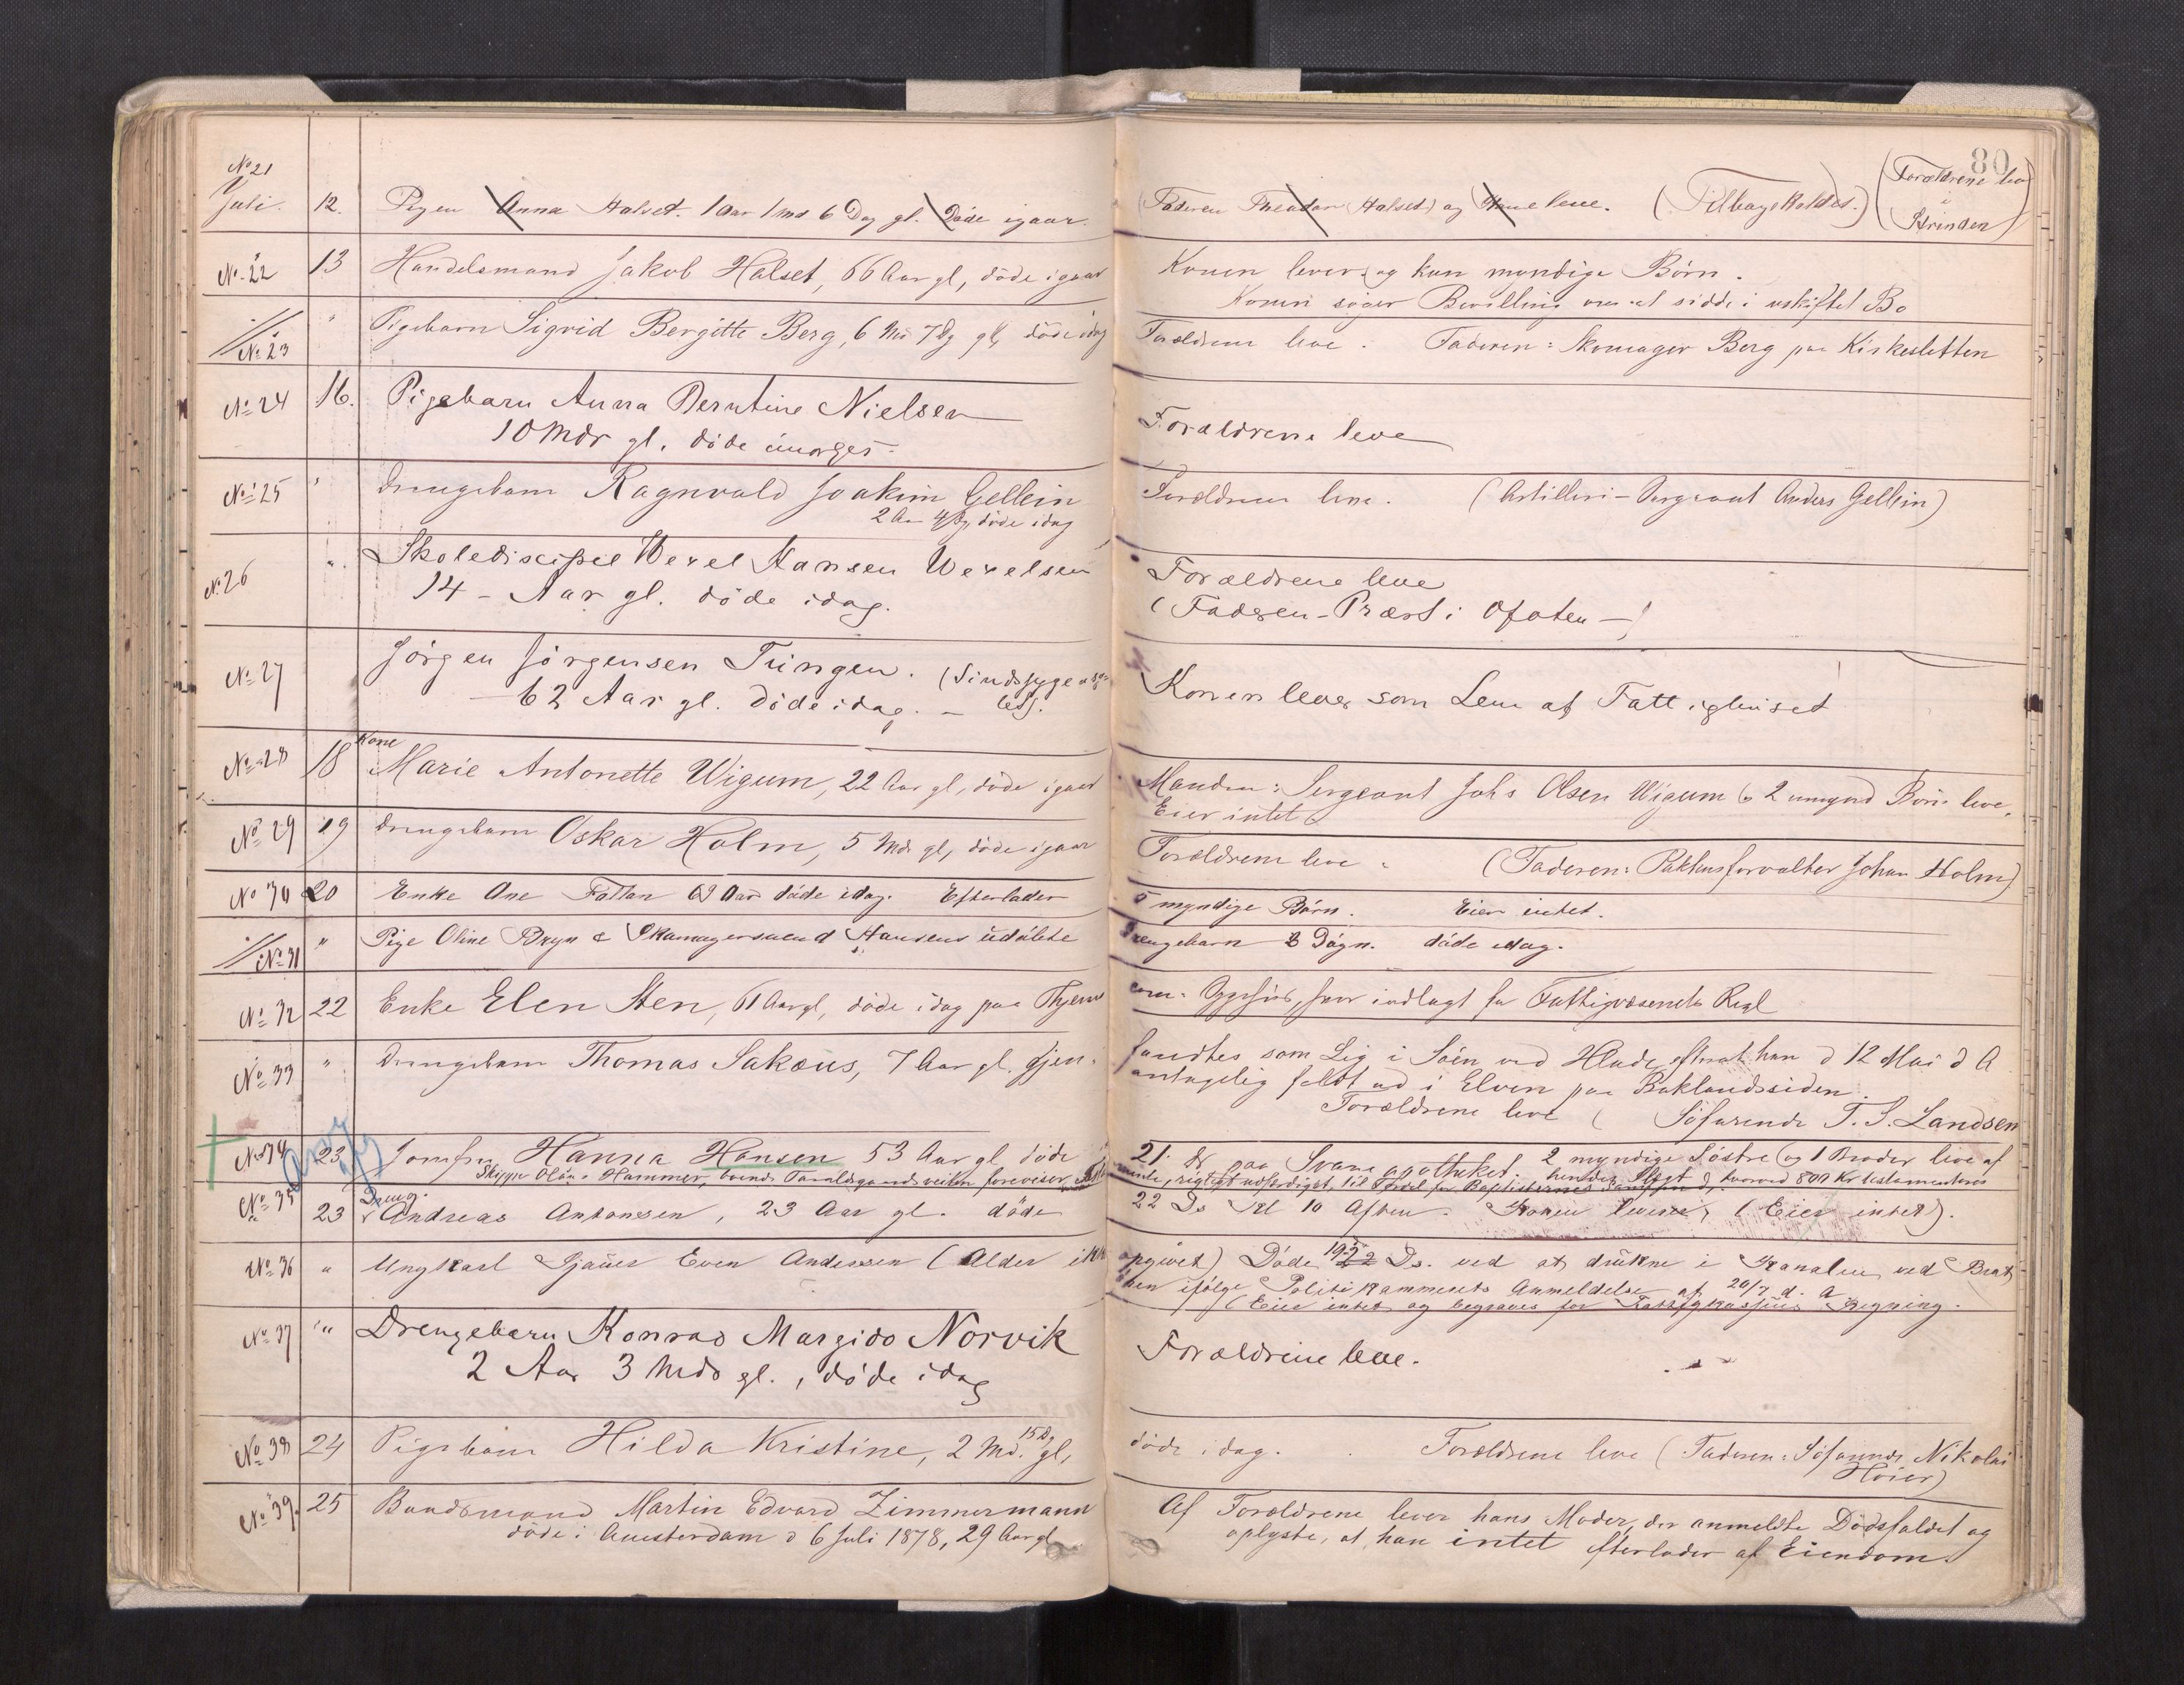 80
No 21
Juli. 12. Pigen Anna Halset. 1 Aar 1 Md 6 Dag gl. Døde igaar. (Faderen Theodor Halset) og leve. (Tilbagekaldes.) (Forældrene leve i Strinden)
No 22 13 Handelsmand Jakob Halset, 66 Aar gl, døde igaar Konen lever og kun myndige Börn.
Konen søger Bevilling om at sidde i uskiftet Bo
No 23 " Pigebarn Sigrid Bergitte Berg, 6 Md 7 Dg gl, döde idag Forældrene leve. Faderen: Skomager Berg paa Kirkesletten
No 24 16. Pigebarn Anna Berntine Nielsen
10 Mdr gl. döde imorges. Forældrene leve
No 25 " Drengebarn Ragnvald Joakim Gellein Forældrene leve. (Artilleri-Sergeant Anders Gellein)
2 Aar 4 Dg døde idag
No 26 " Skolediscipel Wexel Hansen Wexelsen Forældrene leve
14 - Aar gl. döde idag. (Faderen - Præst i Ofoten -)
No 27 Jörgen Jörgensen Tungen. (Sindssyge
62 Aar gl. Döde idag. - Konen lever som Lem af Fattighuset
No 28 18 Kone Marie Antonette Wigum, 22 Aar gl, døde igaar Manden: Sergeant Johs Olsen Wigum & 2 umynd Börn leve.
Eier intet
No 29 19 Drengebarn Oskar Holm, 5 Md. gl, døde igaar Forældrene leve. (Faderen: Pakhusforvalter Johan Holm)
No 30 20 Enke Ane Fallan 69 Aar döde idag. Efterlader 5 myndige Börn. Eier intet.
No 31 " Pige Oline Bryn & Skomagersvend Hansens udöbte Drengebarn 3 Døgn. döde idag.
No 32 22 Enke Elen Sten, 61 Aar gl, döde idag paa Thjems
No 33 " Drengebarn Thomas Sakæus, 7 Aar gl. gjen- fandtes som Lig i Söen ved Hlade, efterat han d 12 Mai d A
antagelig faldt ud i Elven paa Baklandssiden.
Forældrene leve ( Söfarende T. S. Landsen
No 34 23 Jomfru Hanna Hansen 53 Aar gl döde 21. ds paa Svaneapotheket. 2 myndige Söstre og 1 Broder leve af
Skipper Olaus Hammer, boende foreviser
No 35 23 Dreng. Andreas Antonsen, 23 Aar gl. døde 22 Ds Kl 10 Aften. Konen lever, (Eier intet).
No 36 " Ungkarl Even Andersen (Alder ikke opgivet) Döde 19 Ds. ved at drukne i Kanalen ved Brat-
ören ifølge Politikammerets Anmeldelse af 20/7 d. A
(Eier intet og begraves for Fattigkassens Regning.
No 37 " Drengebarn Konrad Margido Norvik Forældrene leve.
2 Aar 3 Mdr gl., döde idag
No 38 24 Pigebarn Hilda Kristine, 2 Md. 15 Dg gl, döde idag. Forældrene leve (Faderen: Söfarende Nikolai
Höier)
No 39. 25 Baadsmand Martin Edvard Zimmermann Af Forældrene lever hans Moder, der anmeldte Dödsfaldet og
döde i Amsterdam d 6 Juli 1878, 29 Aar gl oplyste, at han intet efterlader af Eiendom.